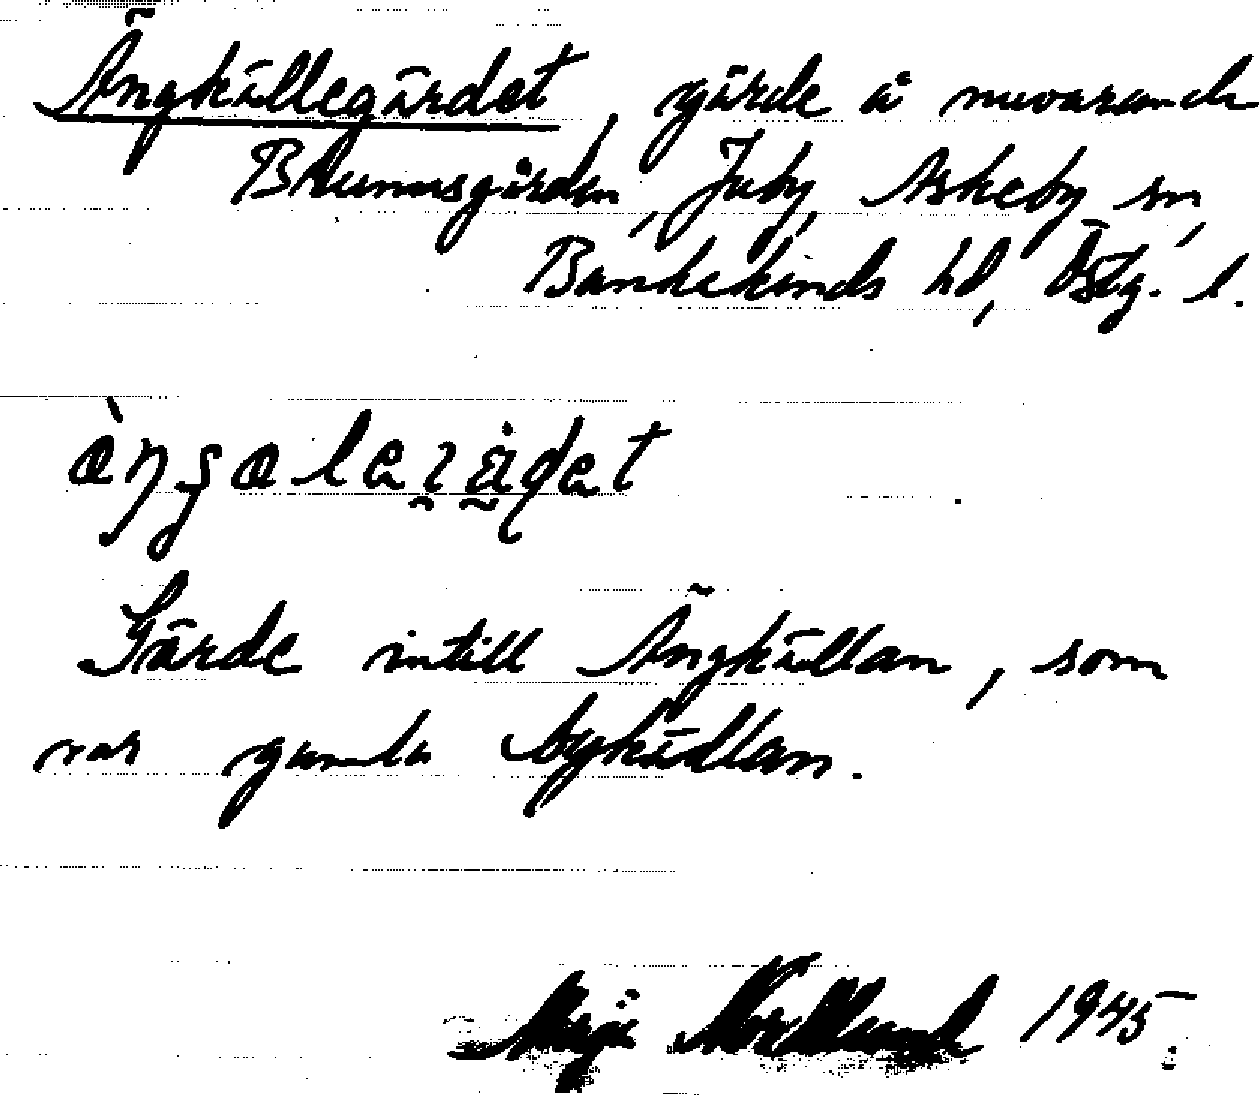 Ängkällegärdet, gärde å nuvarande
Brunnsgården, Juby, Askeby sn,
Bankekinds hd, Östg. l.
Gärde intill Ängkällan, som
var gamla bykällan.
Maja Nordlund 1945.